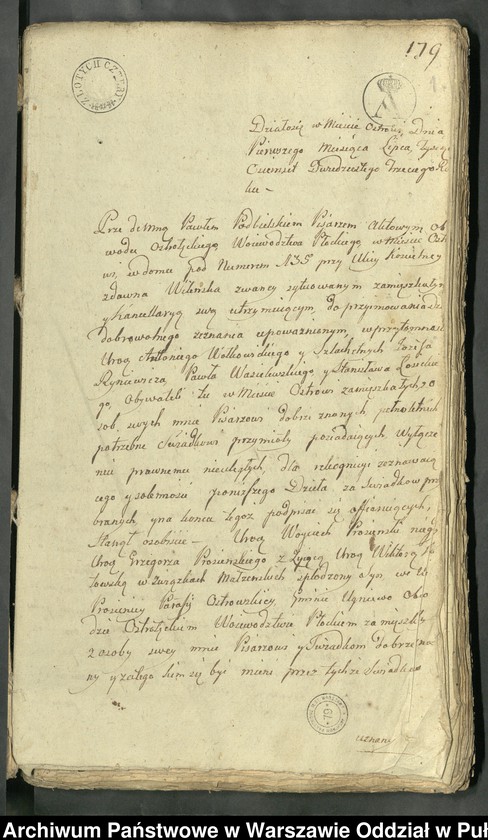 179
ZŁOTYCH CZTERY
Działo się w Mieście Ostrowi, Dnia
Pierwszego Miesiąca Lipca, Tysiąc
Osiemset Dwudziestego Trzeciego Ro
ku –
Prze de Mną Pawłem Podbielskiem Pisarzem Aktowym Ob
wodu Ostrołęckiego Woiewodztwa Płockiego w Mieście Ost
wi, w domu pod Numerem 135 przy Ulicy Kościelney
zdawna Wileńska zwaney sytuowanym zamieszkałym
y Kancellaryą swą utrzymuiącym, do przyimowania
Dobrowolnego zeznania upoważnionym, w przytomności
Urog Antoniego Wolkowskiego y Szlachetnych Józefa
Ryniewicza, Pawła Wasilewskiego y Stanisława
go, Obywateli tu w Mieście Ostrowi zamieszkałych, z o
sob swych mnie Pisarzowi dobrze znanych, pełnoletnich
potrzebne Świadkowi przymioty posiadaiących, Wyłącze
niu prawnemu nieuległych, dla rekognicyi zeznawaią
cego y solenności ponizszego Dzieła za Świadków przy
branych, y na końcu tegoż podpisać się offiaruiących,
Stanął osobiście – Urog Woyciech Prosienski niegdy
Urog Grzegorza Prosienskiego z Urog Wiktoryą
towską w Związkach Małżenskich spłodzony syn, we Wsi
Prosienicy Parafii Ostrowskiey, Gminie Ugniewo Obwo
dzie Ostrołęckim Woiewodztwie Płockiem zamieszkały
z osoby swey mnie Pisarzowi y Świadkom dobrze zna
ny y za tego kiem się być mieni przez tychże Świadków
79
uznany
Archiwum Państwowe w Warszawie Oddział w Puł